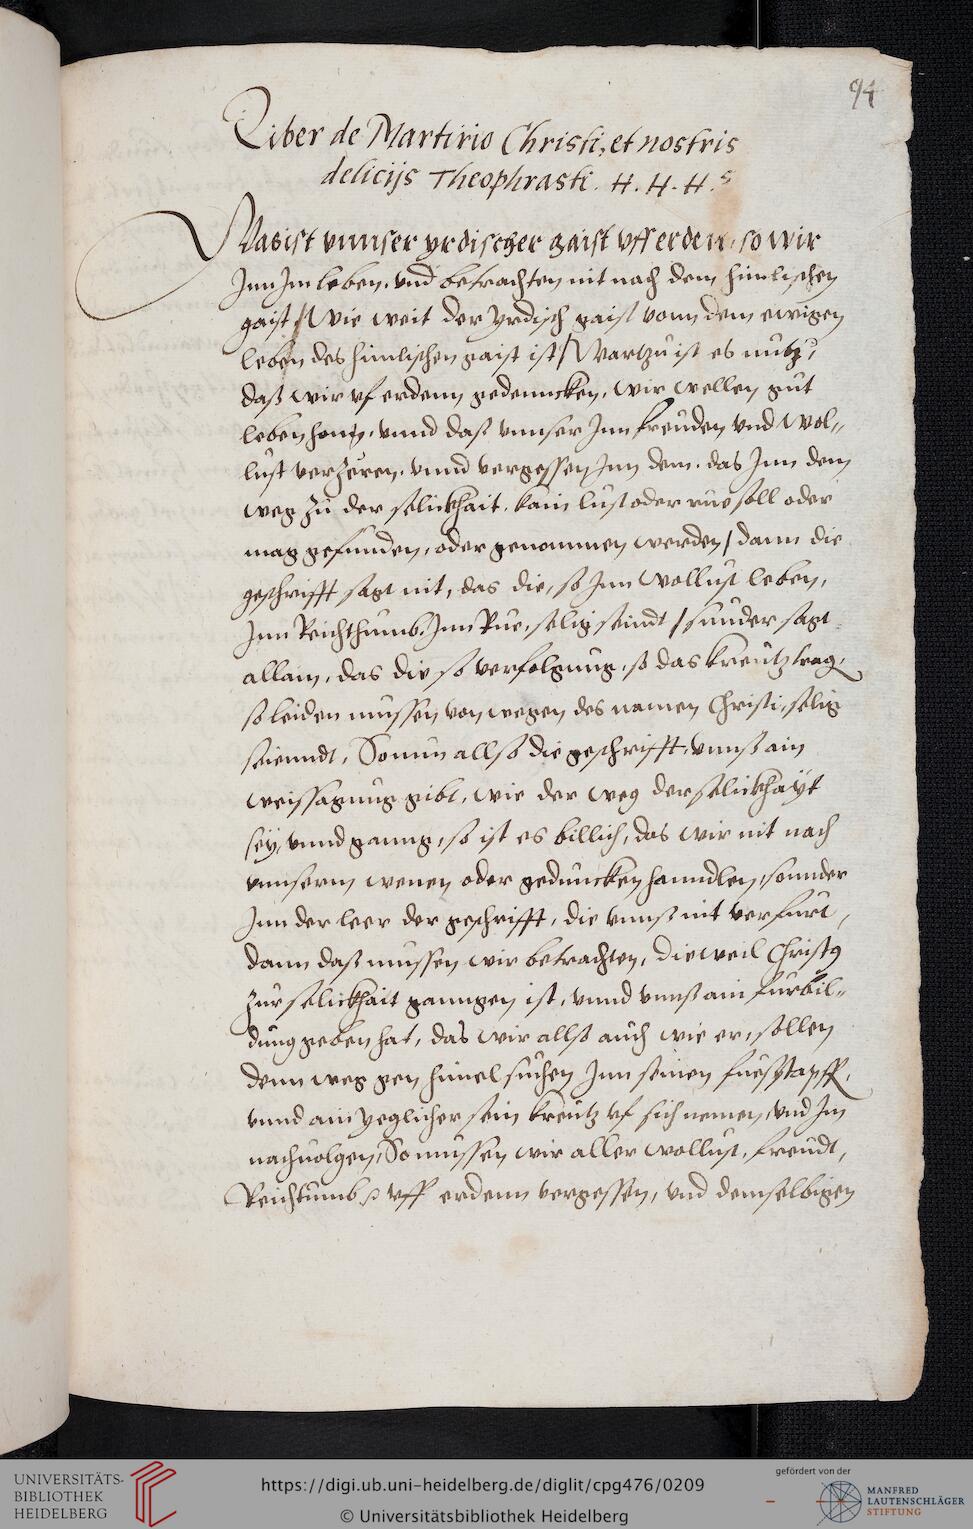 94
Liber de Martirio Christi, et nostris
delicijs Theophrasti. H. H. H.s
Was ist vnnser yrdischer gaist vff erden, so wir
Inn Im leben, vnd betrachten nit nach dem himlischen
gaist / Wie weit der yrdisch gaist vonn dem ewigen
leben des himlischen gaist ist / Wartzu ist es nutz,
daß wir vf erdenn gedenncken, wir wellen gut
leben hon, vnnd daß vnnser Inn freuden vnd wol„
lust verzeren, vnnd vergessen Inn dem, das Inn dem
weg zu der selickhait, kain lust oder rue soll oder
mag gefunden, oder genommen werden / dann die
geschrifft sagt nit, das die, so Inn wollust leben,
Inn Reichthumb, Inn Rue, selig seindt / sunder sagt
allain, das die so verfolgnug, so das kreutz trag,
so leiden mussen von wegen des namen Christi, selig
seienndt, So nun allso die geschrifft, vnnß ain
weissagnug gibt, wie der weg der selickhayt
sey, vnnd ganng, so ist es billich, das wir nit nach
vnnserm wenen oder geduncken hanndlen, sonnder
Inn der leer der geschrifft, die vnnß nit verfurt,
dann daß mussen wir betrachten, dieweil Christ9
zur selickhait ganngen ist, vnnd vnnß ain furbil„
dung geben hat, das wir allso auch wie er, sollen
denn weg gen himel suchen Inn seinen fuesstapff,
vnnd ain yeglicher sein kreutz vf sich nemen, vnd Im
nachuolgen, So mussen wir aller wollust, freudt,
Reichtumb vff erdenn vergessen, vnd demselbigen
UNIVERSITÄTS-
BIBLIOTHEK
HEIDELBERG
https://digi.ub.uni-heidelberg.de/diglit/cpg476/0209
© Universitätsbibliothek Heidelberg
gefördert von der
MANFRED
LAUTENSCHLÄGER
STIFTUNG